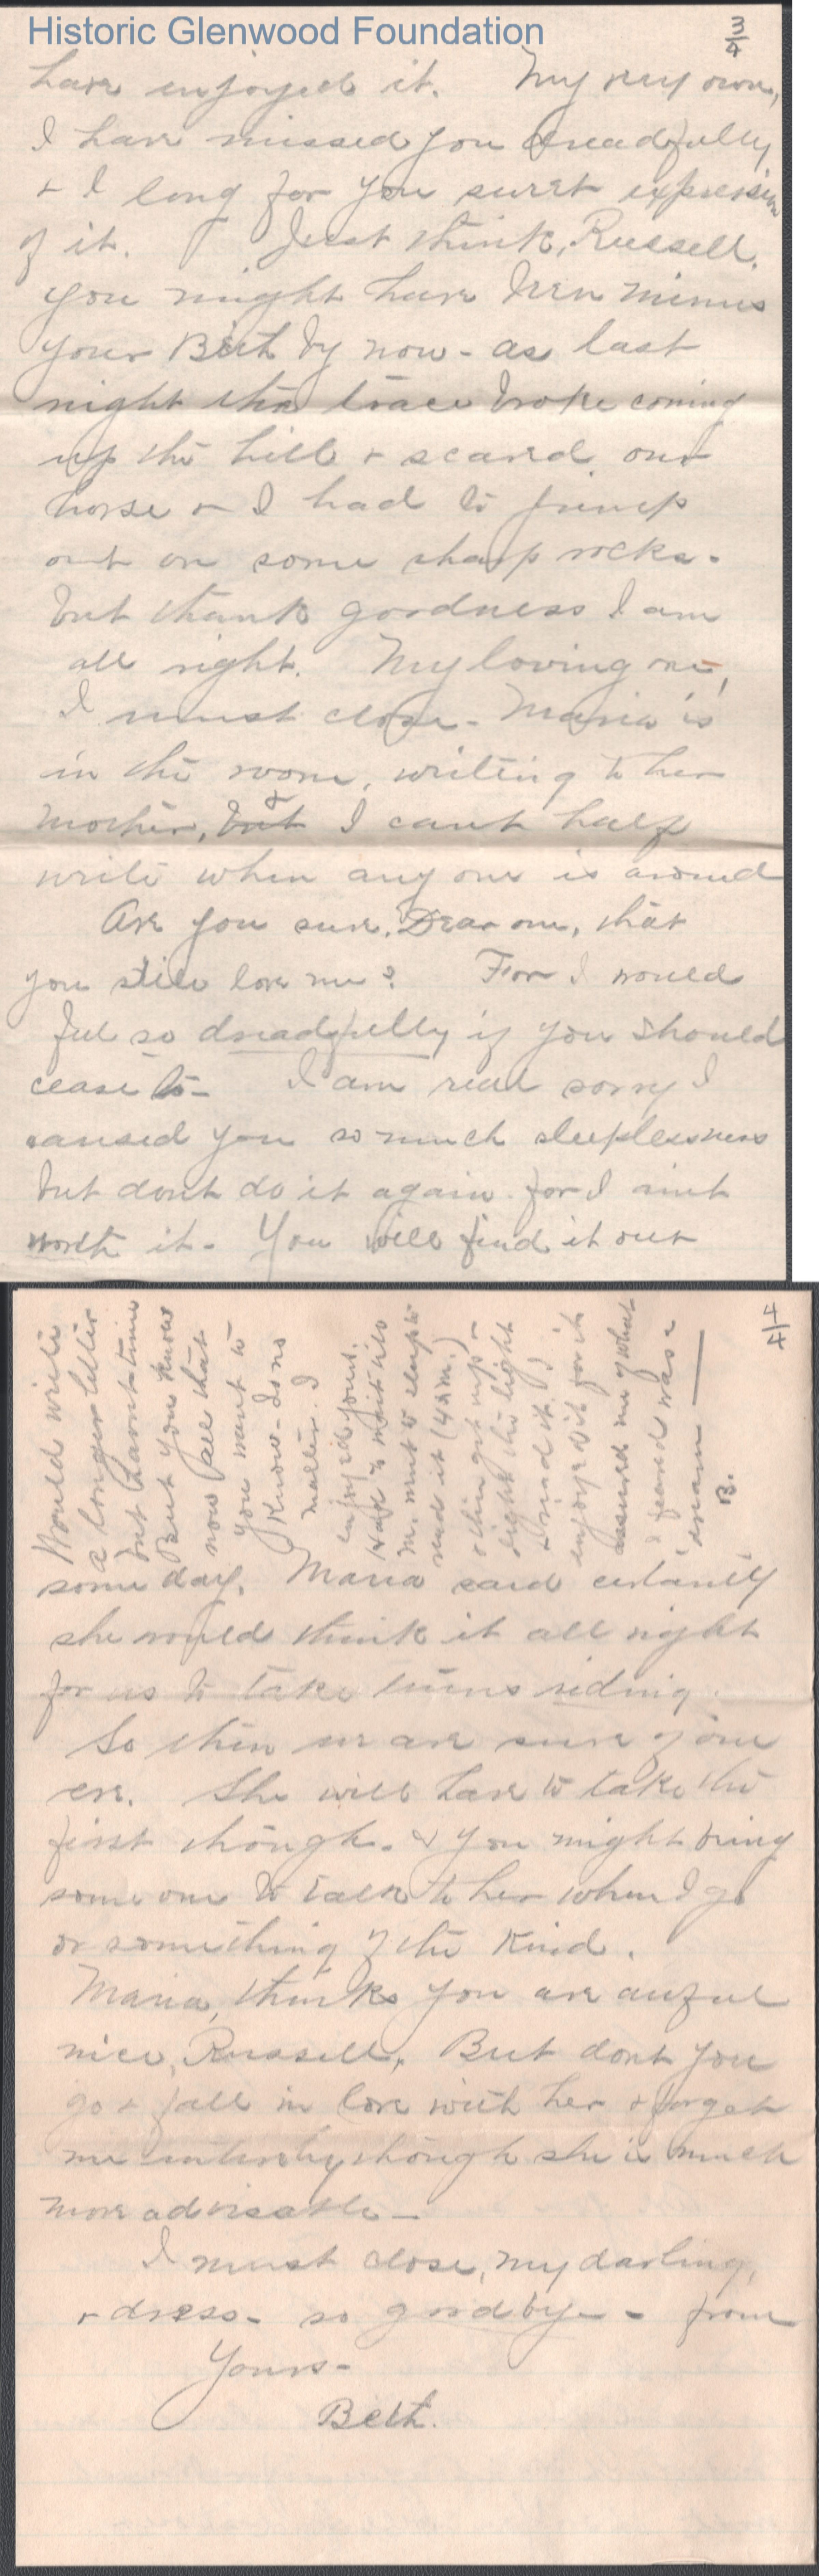 Historic Glenwood Foundation
3/4
have enjoyed it. My very own,
I have missed you dreadfully
+ I long for you sweet expression
of it. Just think, Russell,
you might have been minus
your Beth by now - as last
night the trace broke coming
up the hill + scared our
horse + I had to jump
out on some sharp rocks.
but thank goodness I am
all right. My loving one,
I must close - Maria is
in the room, writing to her
mother, but + I cant half
write when any one is around
Are you sure, Dear one, that
you still love me? For I would
feel so dreadfully if you should
cease to - I am real sorry I
caused you so much sleeplessness
but dont do it again for I aint
worth it - You will find it out
4/4
Would write
a longer letter
but havent time
But you know
now all that
you want to
Know - so no
matter. I
enjoyed yours.
Had to wait till
M. went to sleep to
read it (4 a.m.)
+ then get up +
light the light
+ read it. I
enjoyed it for it
assured me of what
I feared was a
dream
B.
some day. Maria said certainly
she would think it all right
for us to take turns riding.
So then we are sure of one
 She will have to take the
first though. + you might bring
some one to talk to her when I go
or something of the Kind.
Maria, thinks you are awful
nice, Russell, But dont you
go + fall in love with her + forget
me entirely though she is much
more advisable -
I must close, my darling,
+ dress - so goodbye - from
Yours -
Beth.